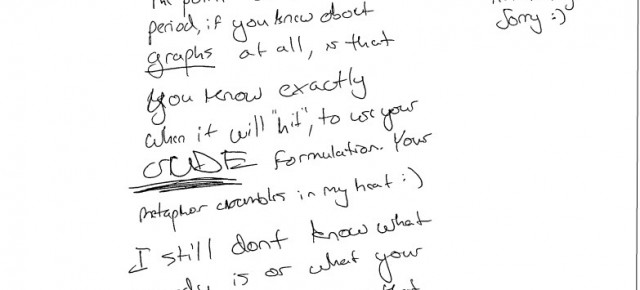 period, if you know about
graphs at all, is that
you know exactly
when it will "hit", to use your
CRUDE formulation. Your
metaphor crumbles in my heat :)
I still dont know what
is or what your
Sorry :)